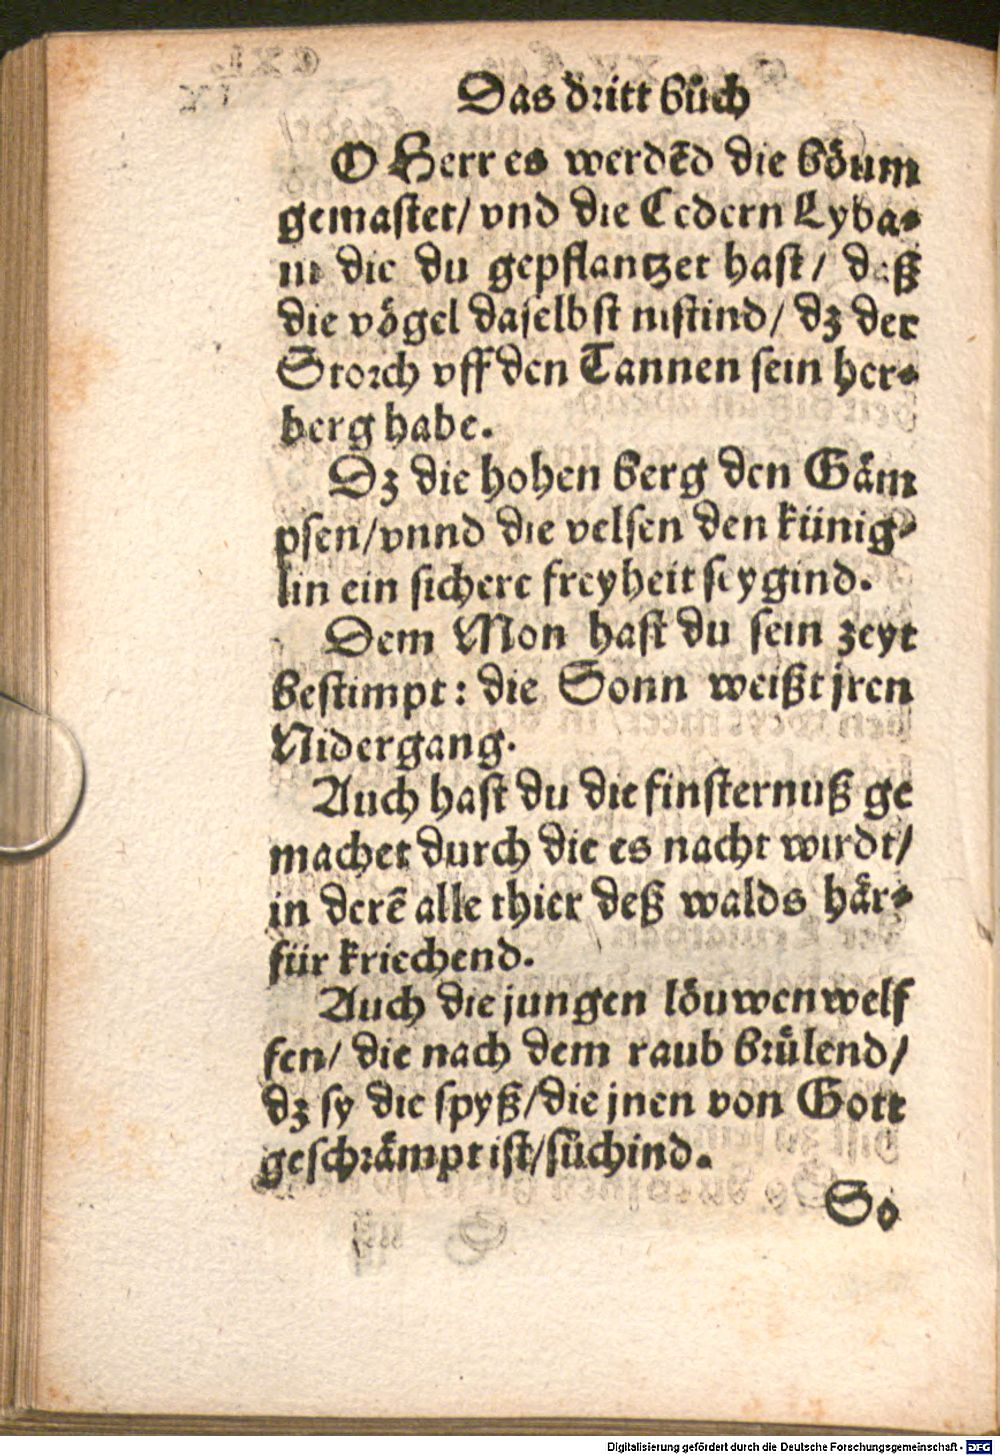 Das dritt bůch
O Herr es werdẽd die böum
gemastet/ vnd die Cedern Lyba-
ni die du gepflantzet hast/ daß
die vögel daselbst nistind/ dz der
Storch vff den Tannen sein her-
berg habe.
Dz die hohen berg den Gäm
psen/vnnd die velsen den künig-
lin ein sichere freyheit seygind.
Dem Mon hast du sein zeyt
bestimpt: die Sonn weißt jren
Nidergang.
Auch hast du die finsternuß ge
machet durch die es nacht wirdt/
in derẽ alle thier deß walds här-
für kriechend.
Auch die jungen löuwenwelf
fen/ die nach dem raub brülend/
dz sy die spyß/die jnen von Gott
geschrämpt ist/sůchind.
So
Digitalisierung gefördert durch die Deutsche Forschungsgemeinschaft - DFG